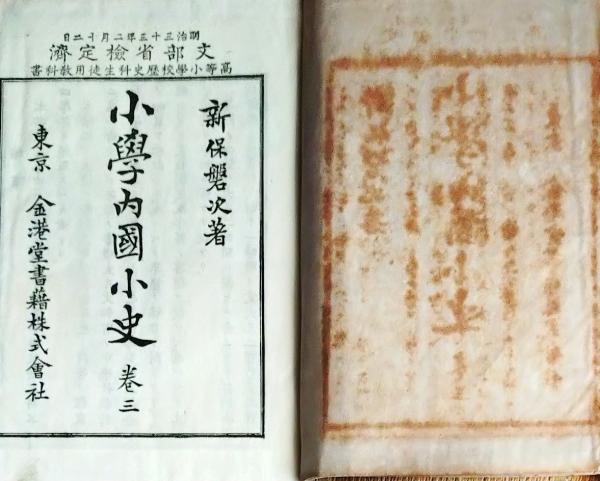 明治三十三年二月十二日
文部省檢定濟
高等小學校歷史科生徒用敎科書
新保磐次著
小學內國小史 卷三
東京 金港堂書籍株式會社